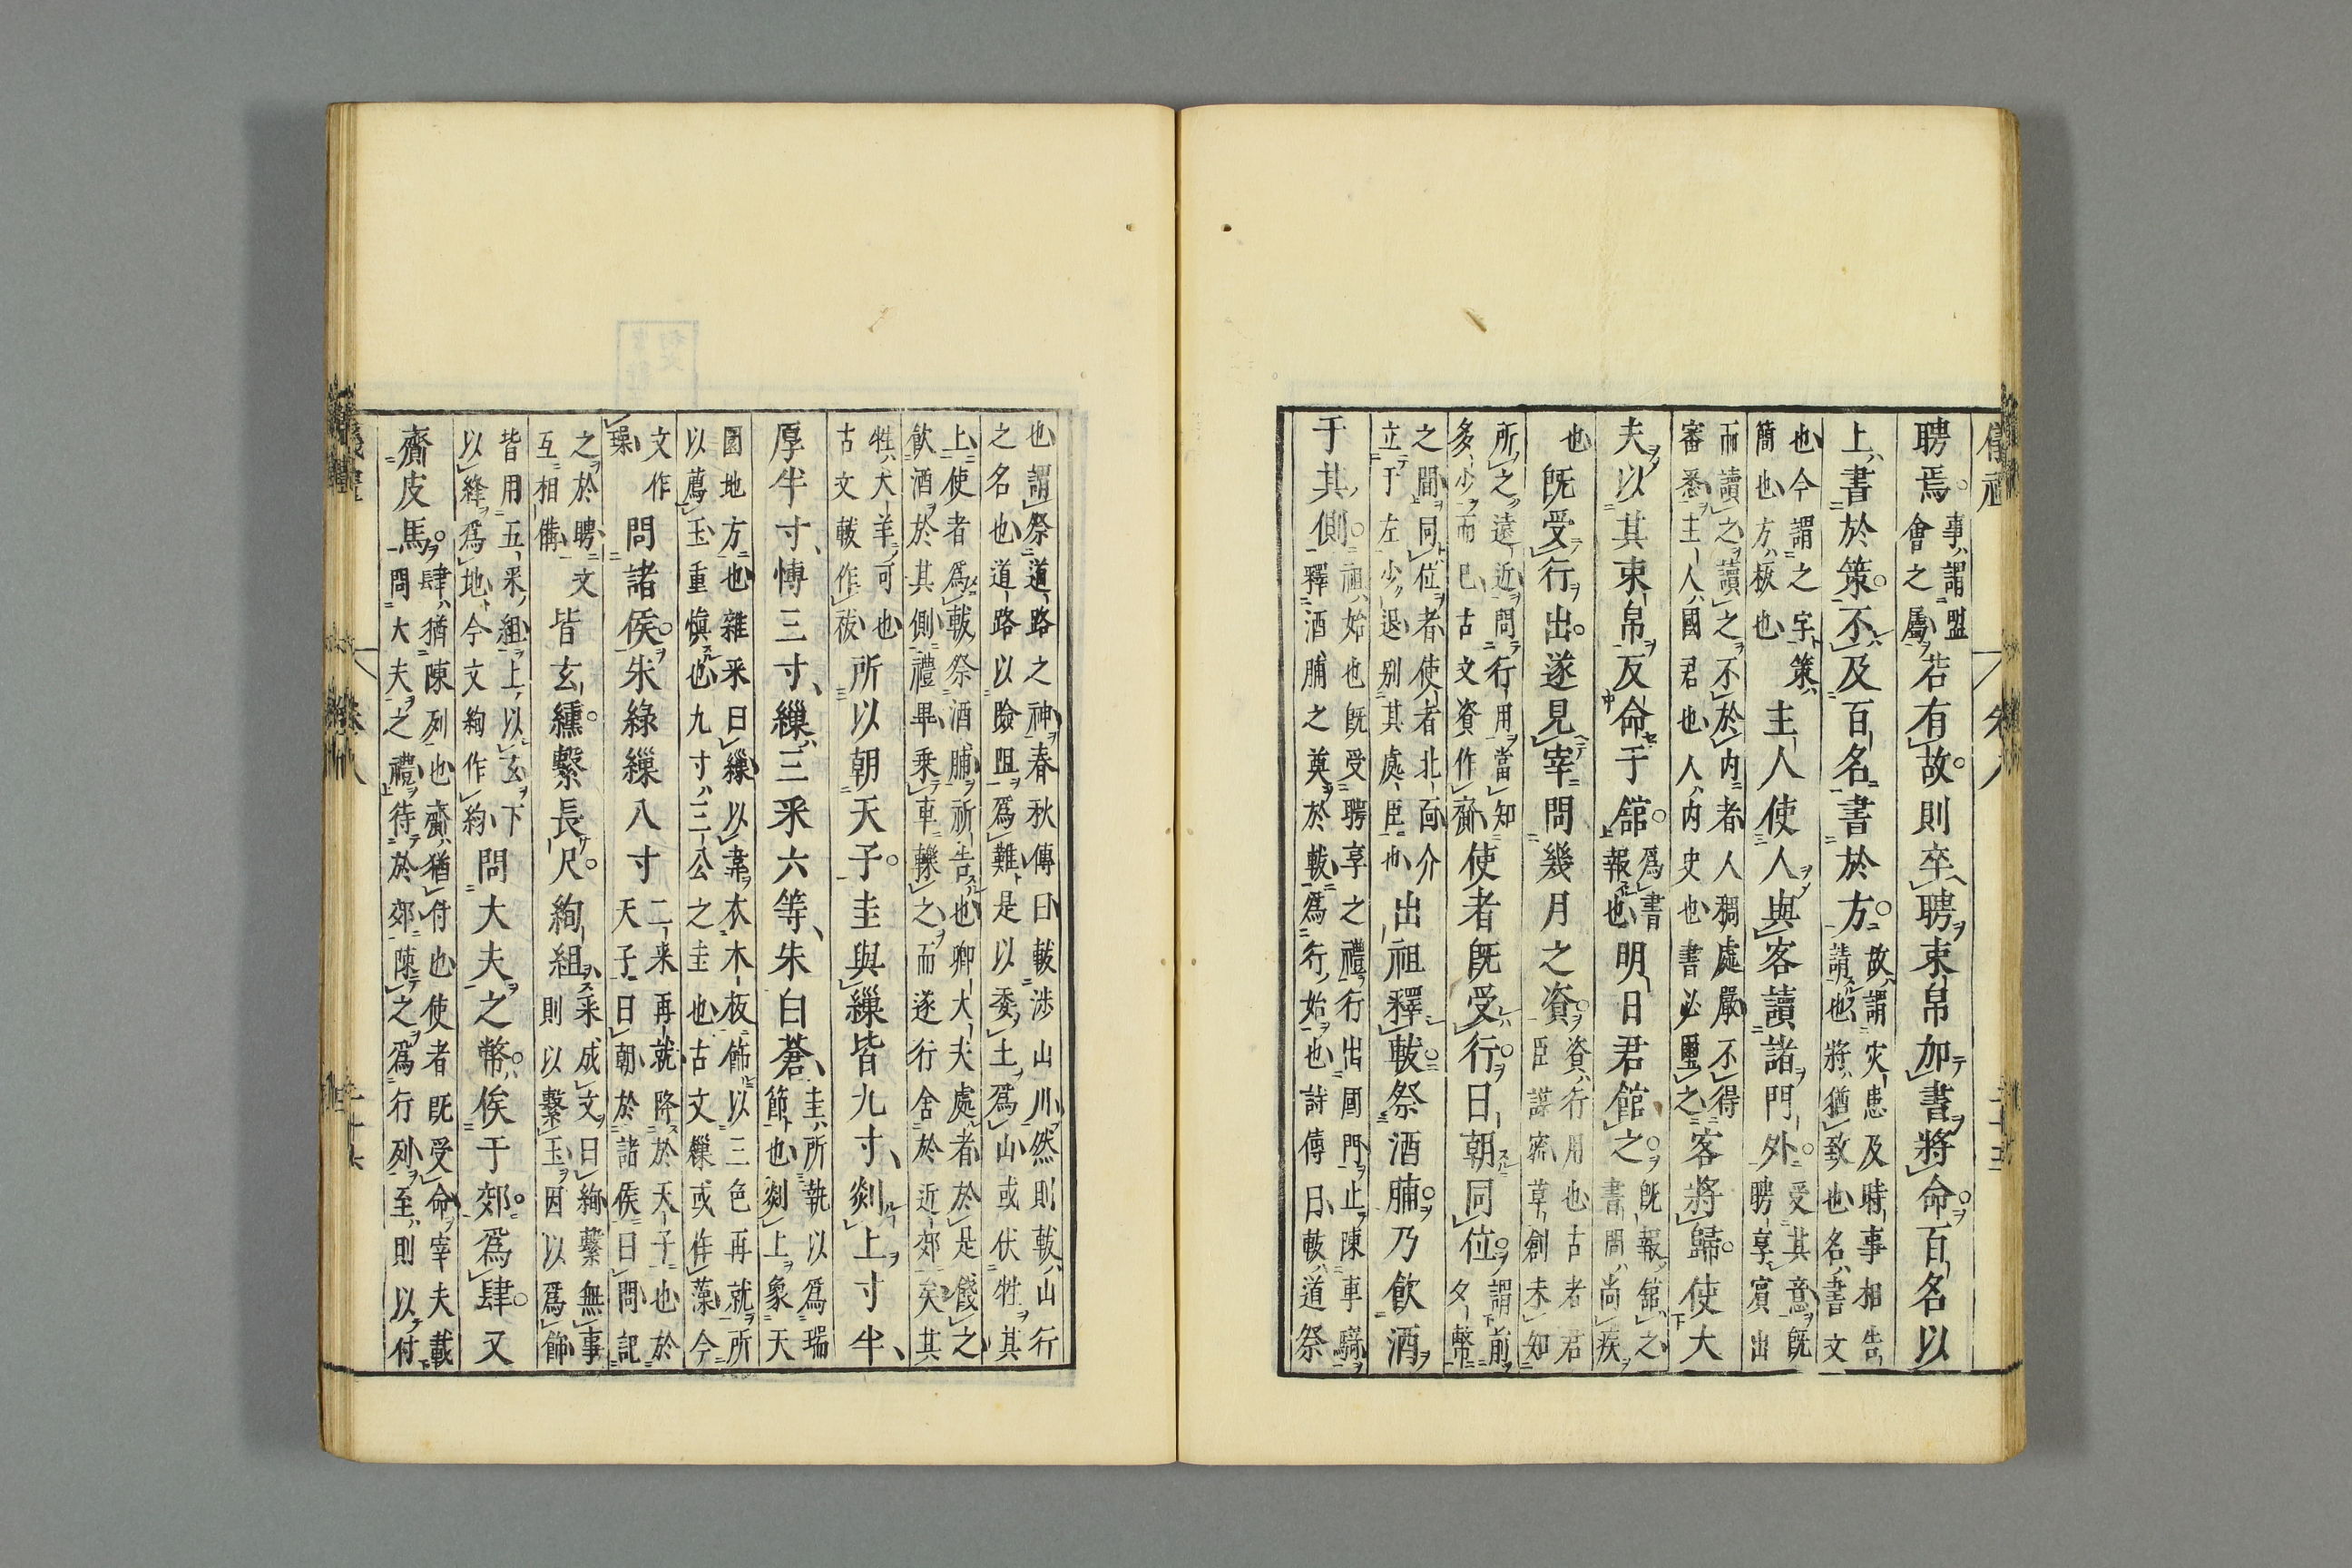 聘焉事謂盟會之屬若有故則卒聘束帛加書將命百名以
上書於策不及百名書於方故謂災患及時事相告請也將猶致也名書文
也今謂之字策簡也方板也主人使人與客讀諸門外受其意既聘享賓出
而讀之讀之不於内者人稠處嚴不得審悉主人國君也人内史也書必璽之客將歸使大
夫以其束帛反命于館爲書報也明日君館之既報館之書問尚疾
也既受行出遂見宰問幾月之資資行用也古者君臣謀密草創未知
所之遠近問行用當知多少而已古文資作齎使者既受行日朝同位謂前夕幣
之間同位者使者北面介立于左少退别其處臣也出祖釋軷祭酒脯乃飲酒
于其側祖始也既受聘享之禮行出國門止陳車騎釋酒脯之奠於軷爲行始也詩傳曰軷道祭
也謂祭道路之神春秋傳曰軷涉山川然則軷山行之名也道路以險阻爲難是以委土爲山或伏牲其
上使者爲軷祭酒脯祈告也卿大夫處者於是餞之飲酒於其側禮畢乘車轢之而遂行舍於近郊矣其
牲犬羊可也古文軷作祓所以朝天子圭與繅皆九寸剡上寸半
厚半寸博三寸繅三采六等朱白蒼圭所執以爲瑞節也剡上象天
圜地方也雜采曰繅以韋衣木板飾以三色再就所以薦玉重慎也九寸三公之圭也古文繅或作藻今
文作璪問諸侯朱綠繅八寸二采再就降於天子也於天子曰朝於諸侯曰問記
之於聘文互相備皆玄纁繫長尺絢組采成文曰絢繫無事則以繫玉因以爲飾
皆用五采組上以玄下以絳爲地今文絢作約問大夫之幣俟于郊爲肆又
齎皮馬肆猶陳列也齎猶付也使者既受命宰夫載問大夫之禮待於郊陳之爲行列至則以付